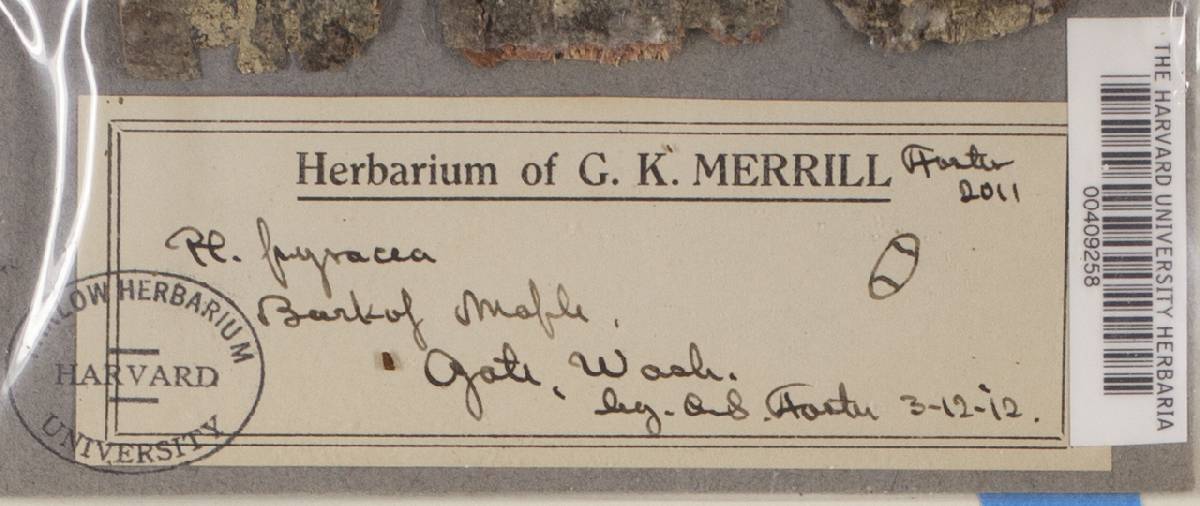 Herbarium of G. K. MERRILL Foster
2011
Pl. pyracea
Bark of Maple.
Gate, Wash.
leg. A.S. Foster 3-12-12.
LOW HERBARIUM
HARVARD
UNIVERSITY
THE HARVARD UNIVERSITY HERBARIA
00409258